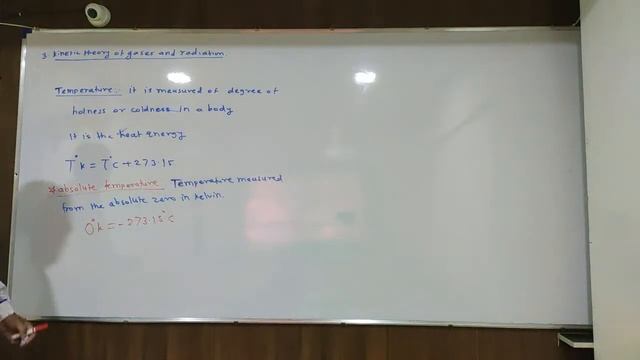 3. Kinetic theory of gases and radiation.
Temperature:- it is measured of degree of
hotness or coldness in a body
It is the heat energy
T°k = T°c + 273.15
* absolute temperature Temperature measured
from the absolute zero in kelvin.
0°k = -273.15°c